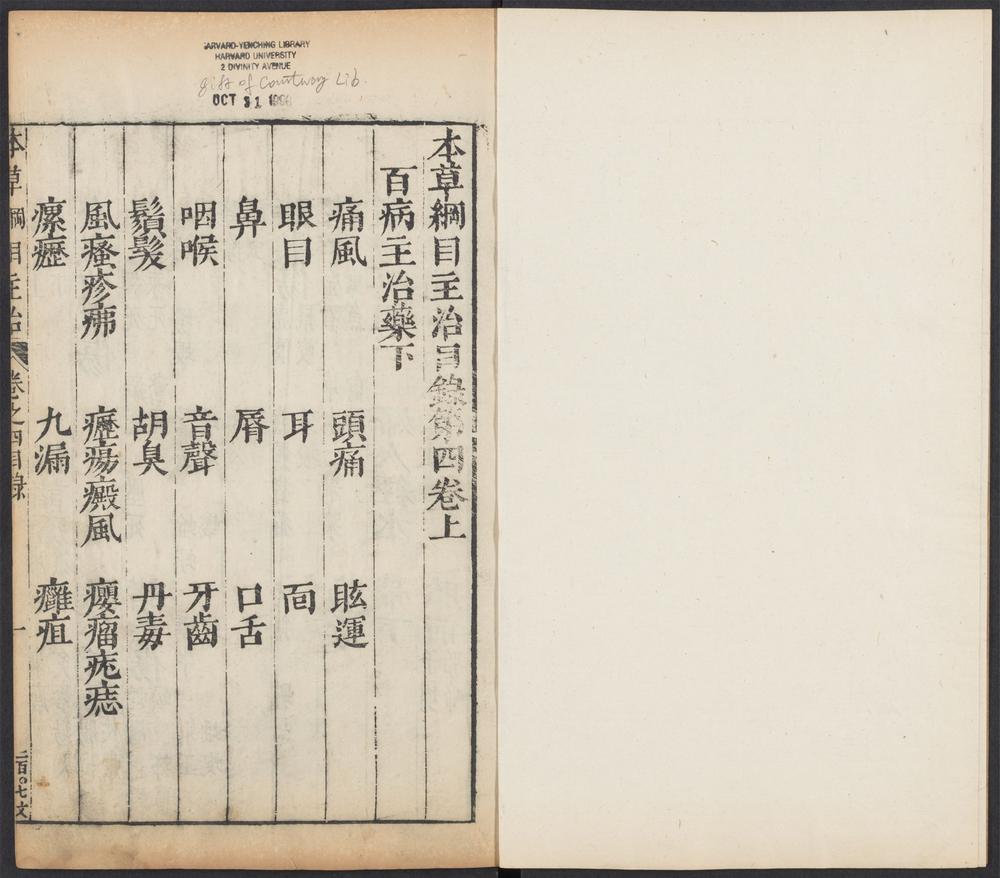 ARVARD-YENCHING LIBRARY
HARVARD UNIVERSITY
2 DIVINITY AVENUE
gift of Countway Lib.
OCT 31
本草綱目主治目錄第四卷上
百病主治藥下
痛風 頭痛 眩運
眼目 耳 面
鼻 脣 口舌
咽喉 音聲 牙齒
鬚髮 胡臭 丹毒
風瘙疹疿 癧瘍癜風 癭瘤疣痣
瘰癧 九漏 癰疽
本草綱目主治 卷之四目錄 一 二百〇七文